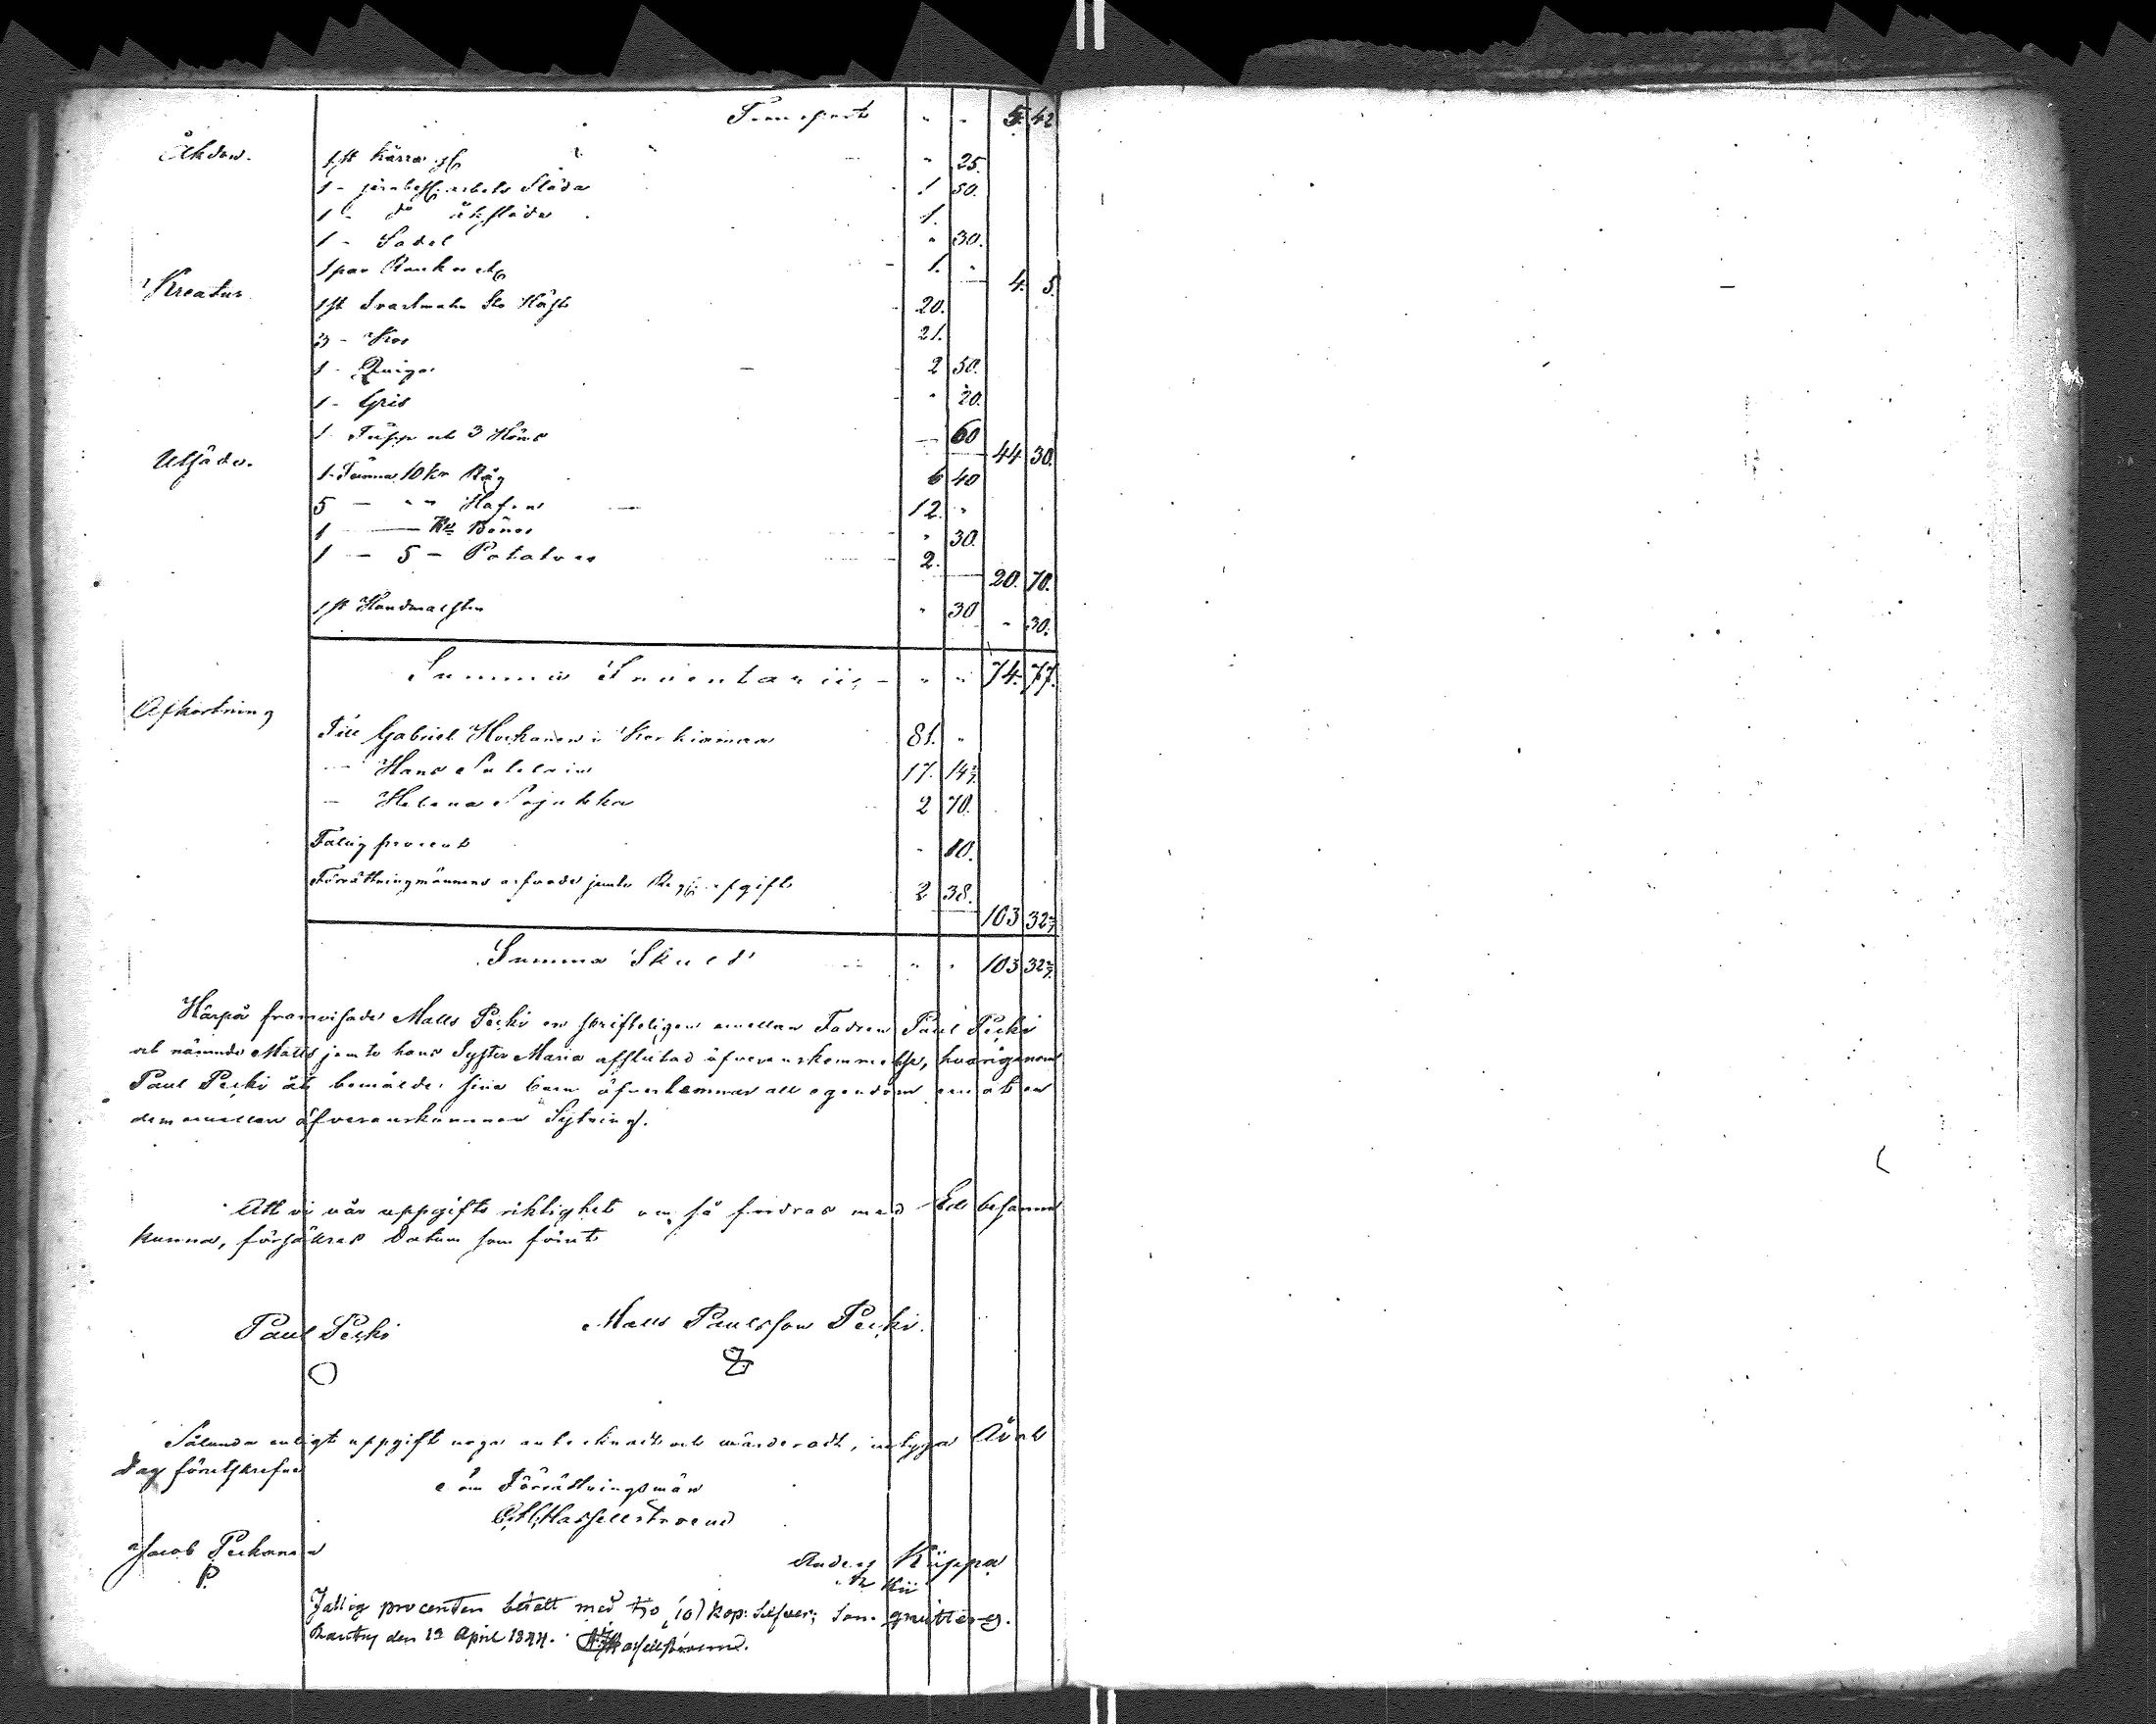 Transport " " 5. 42
Åkdon. 1 st Kärra " 25.
1 - arbets Släda 1 50.
1 - do åksläda 1.
1 - Sadel " 30.
1 par 1. " 4. 5.
Kreatur 1 st Sto Häst 20.
3 - Kor 21.
1 - Quiga 2 50.
1 - Gris " 20.
1 Tupp och 3 Höns — 60 44 30.
Utsäde. 1 Tunna 10 kr Råg 6 40
5 — " " Hafre 12. "
1 — Kr Bönor " 30.
1 — 5 — Potatoes 2. 20. 70.
1 st " 30 " 30.
Summa Inventarii " " 74. 77.
Afkortning
Till Gabriel i 81. "
— Hans 17. 14 2/7
— Helena 2 70.
Fattig procent " 10.
Förrättningmännens arfvode jemte afgift 2 38. 103 32 2/7
Summa Skuld " " 103 32 2/7
Härpå framvisade Matts Peƒki en skrifteligen emellan Fadren Paul
och nämnde Matts jemte hans Syster Maria afslutad öfverenskommelse, hvarigenom
Paul åt bemälde sina barn öfverlemnar all egendom emot en
dem emellan öfverenskommen Sytning.
Att vi vår uppgifts riktighet om så fordras med Ed besanna
kunna, försäkras Datum som förut
Paul
Matts Paulsson
Sålunda enligt uppgift noga antecknadt och värderadt, intyga År och
dag föreskrefne
Förrättningsmän
Hassellstroem
Jacob
P.
Anders Kiippa
Kii
Fattig procenten betalt med tio (10) kop: Silfver; som qvitteras.
den 12 April 1844.